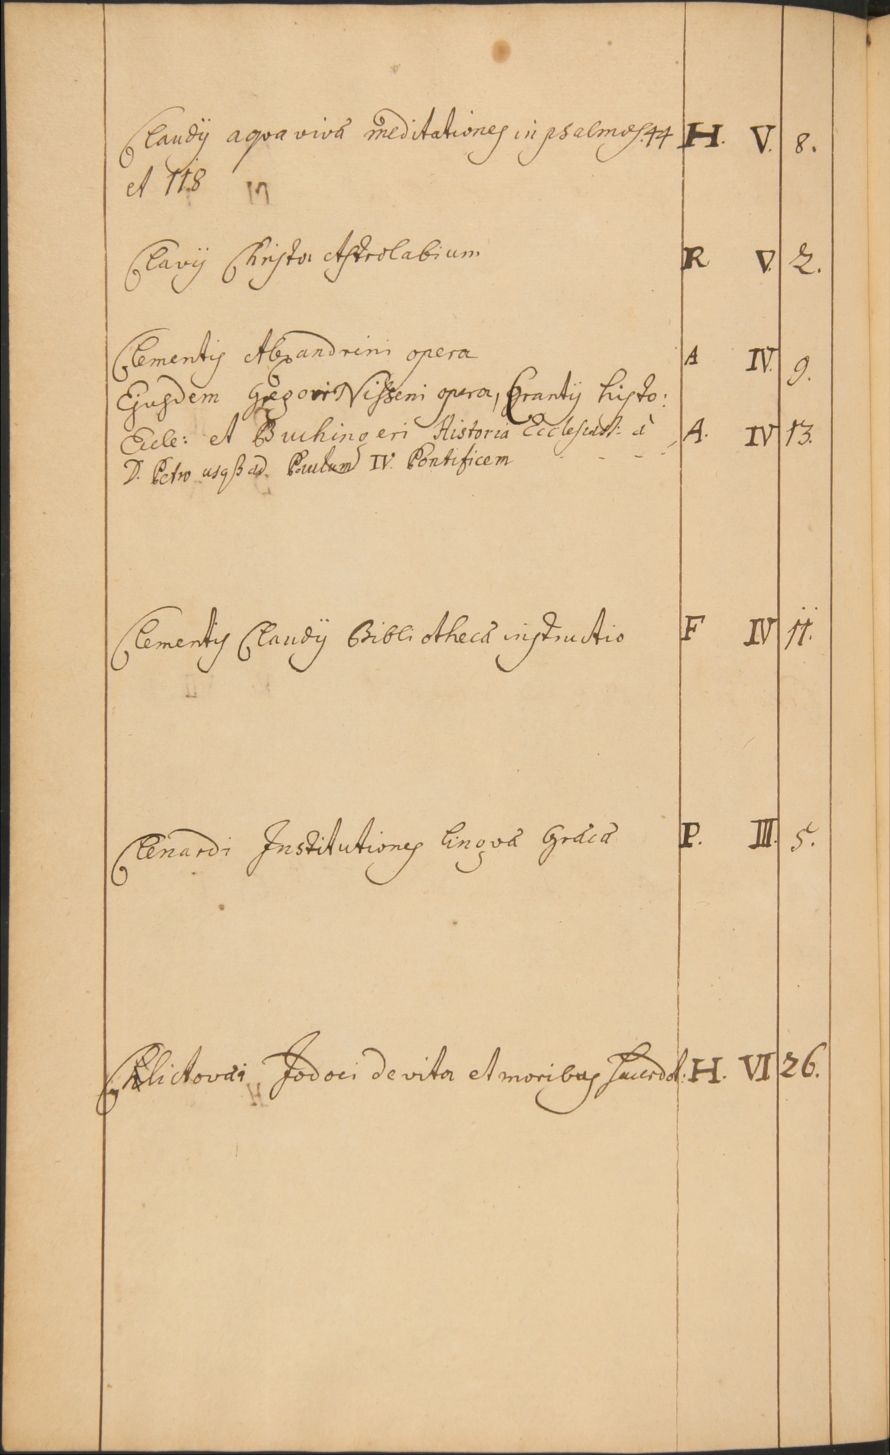 Claudÿ aquaviva meditationes in psalmos. 44 H. V. 8.
et 118
Clavÿ Christo Astrolabium R V. 2.
Clementis Alexandrini opera A IV. 9.
Ejusdem Gregori Nisseni opera, Crantÿ histo:
Eccle: et Buchingeri Historia Ecclesiast: à A. IV 13.
D. Petro usq3 ad Paulum IV. Pontificem
Clementis Claudÿ Bibliotheca instructio F IV 11.
Clenardi Institutiones lingva Græca P. III. 5.
Clictovæi Jodoci de vita et moribus Sacerdot: H. VI 26.